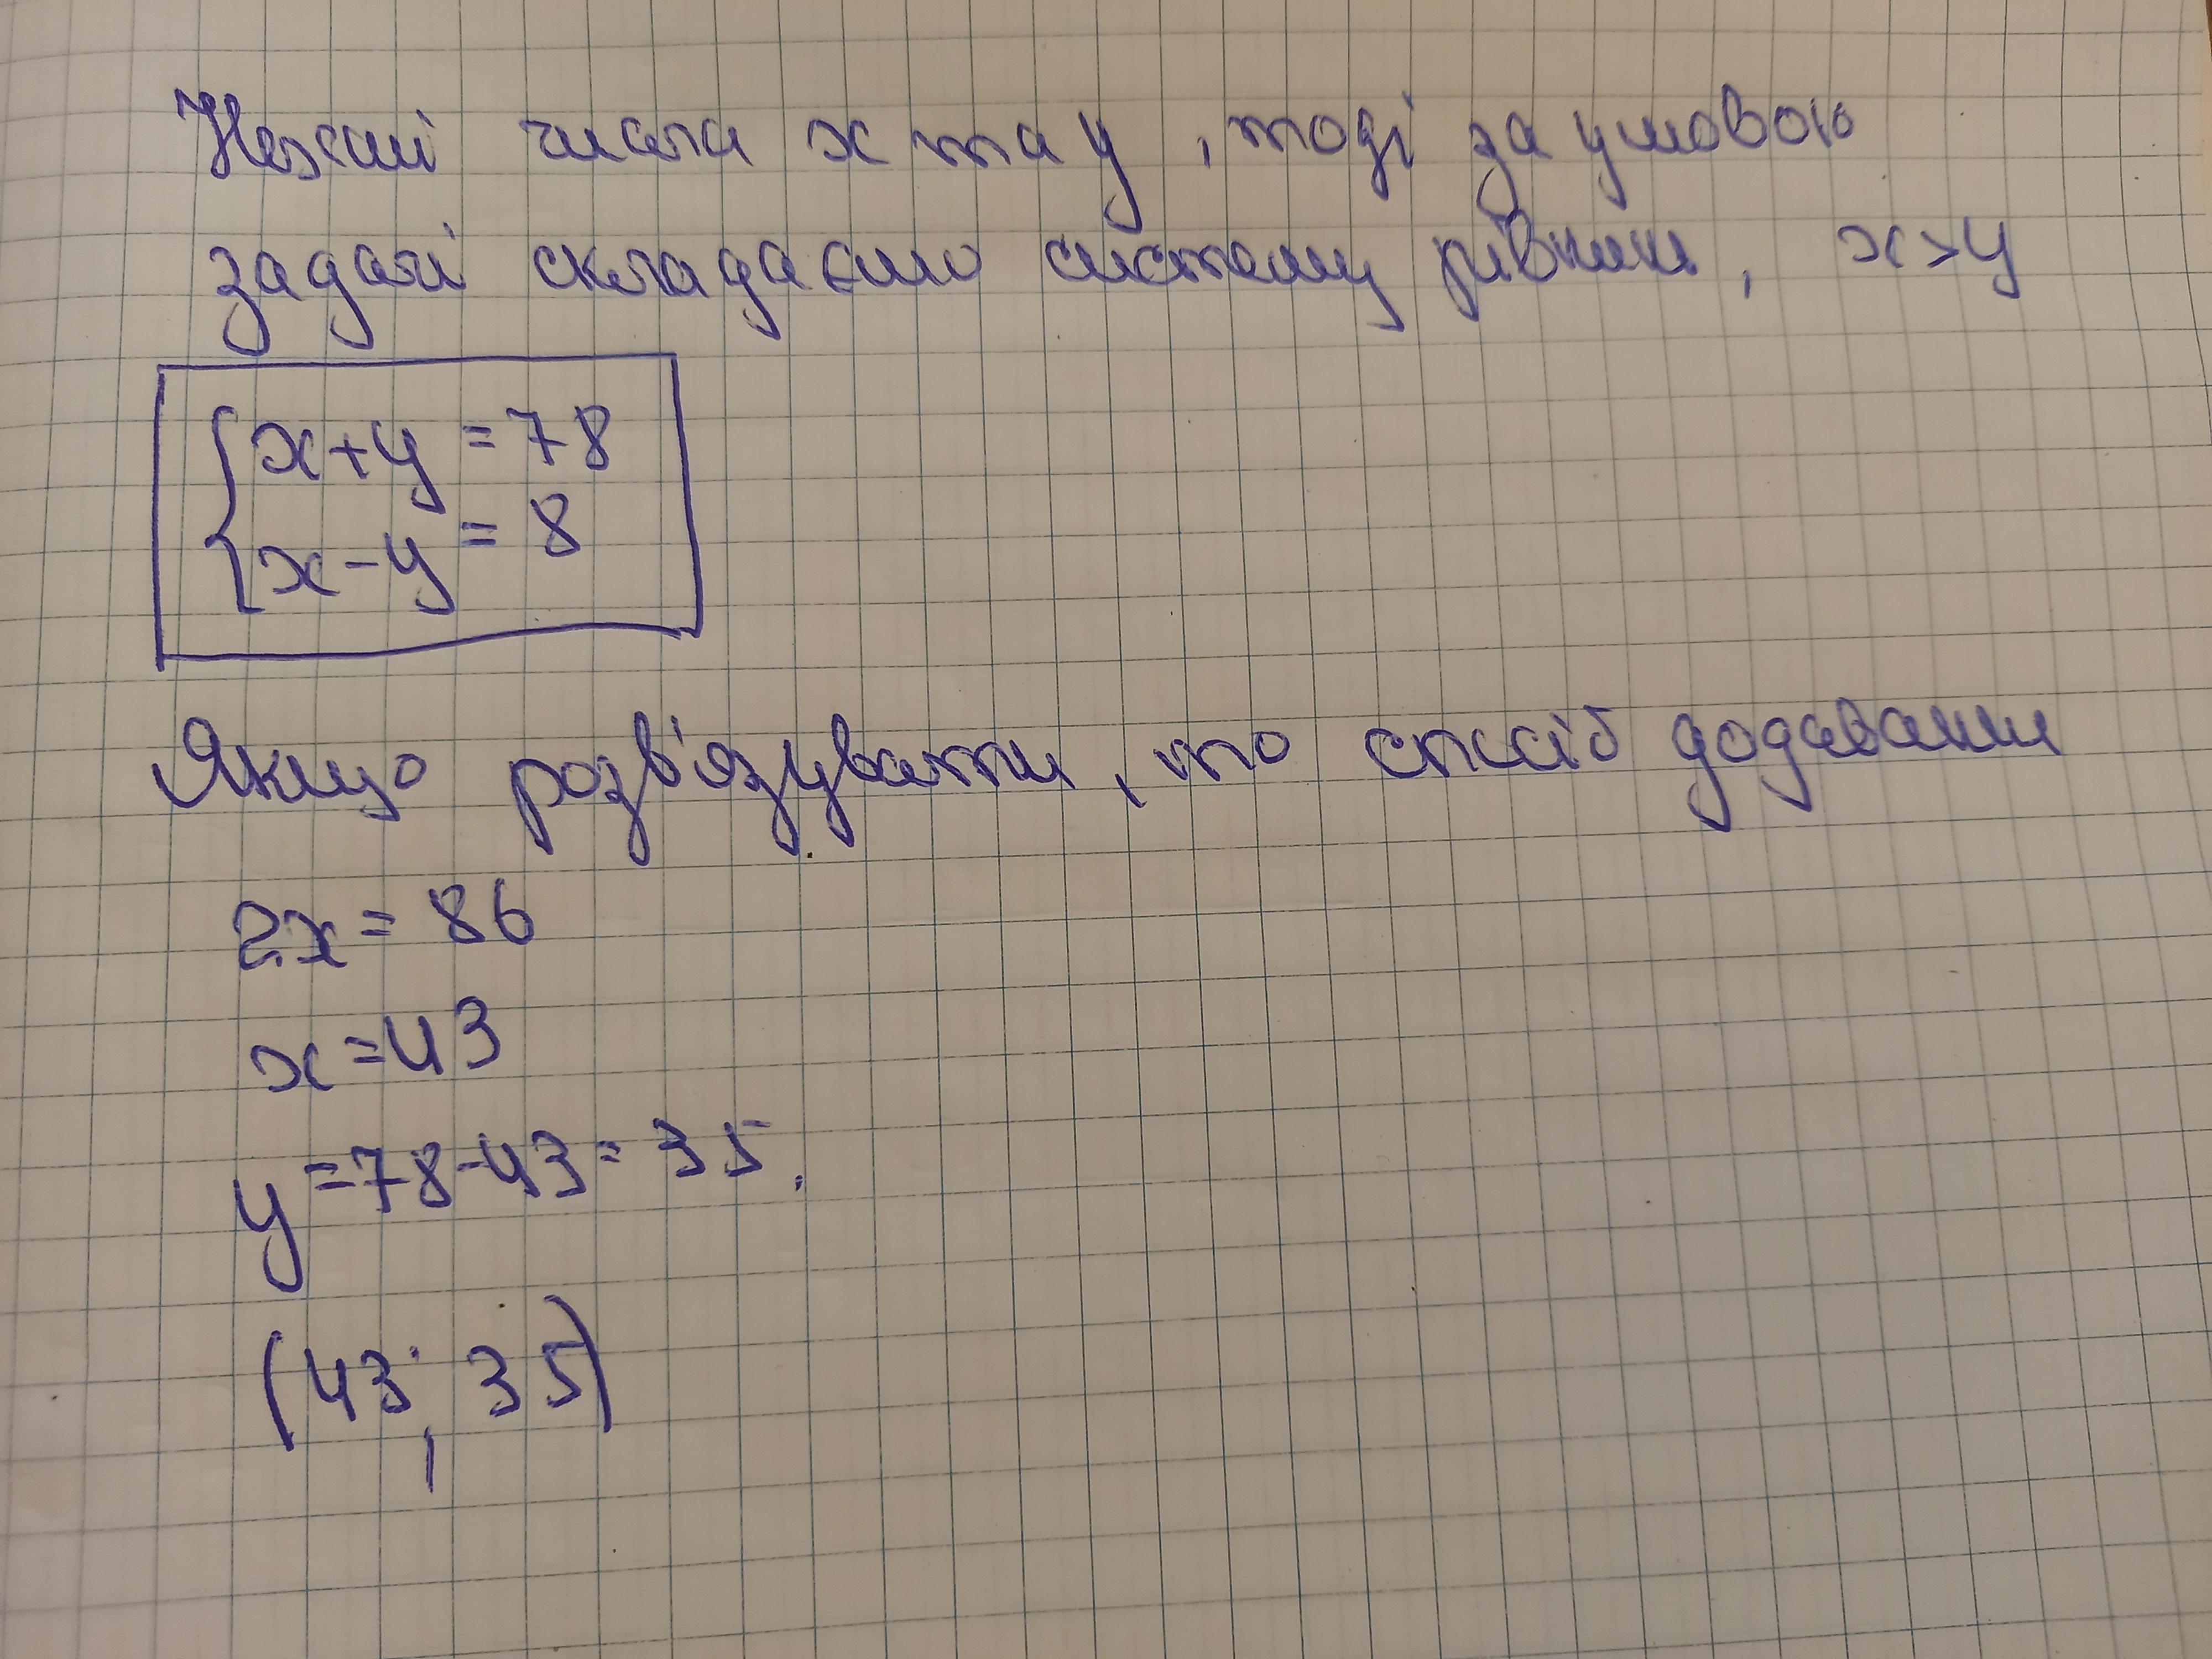 Нехай числа x та y, тоді за умовою
задачі складаємо систему рівнянь, x>y
{x+y = 78
{x-y = 8
Якщо розв'язувати, то спосіб додавання
2x = 86
x = 43
y = 78-43 = 35.
(43; 35)